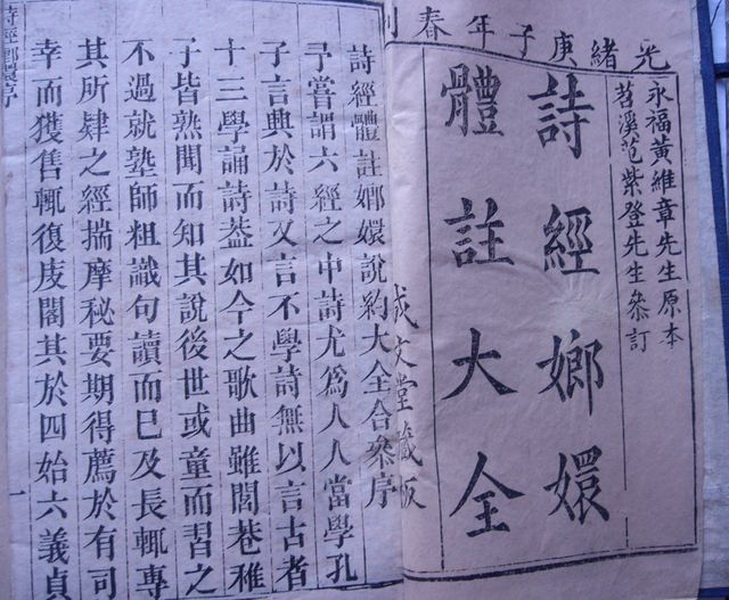 光緒庚子年春刊
永福黃維章先生原本
苕溪范紫登先生叅訂
詩經嫏嬛
體註大全
成文堂藏板
詩經體註嫏嬛說約大全合叅序
予嘗謂六經之中詩尤爲人人當學孔
子言興於詩又言不學詩無以言古者
十三學誦詩葢如今之歌曲雖閭巷稚
子皆熟聞而知其說後世或童而習之
不過就塾師粗識句讀而已及長輒專
其所肄之經揣摩秘要期得薦於有司
幸而獲售輒復庋閣其於四始六義貞
詩經嫏嬛序
一